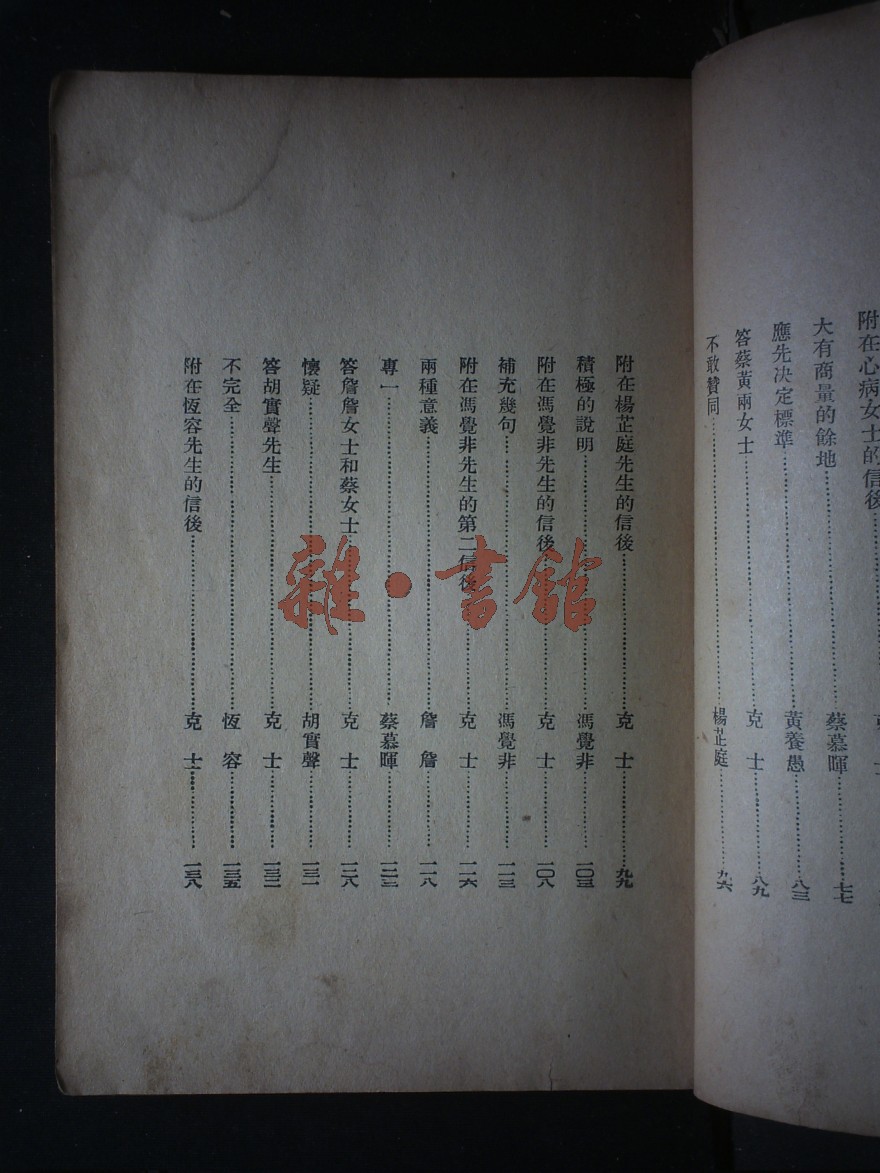 附在心病女士的信後
大有商量的餘地……蔡慕暉……七七
應先決定標準……黃養愚……八三
答蔡黃兩女士……克士……八九
不敢贊同……楊芷庭……九六
附在楊芷庭先生的信後……克士……九九
積極的說明……馮覺非……一〇三
附在馮覺非先生的信後……克士……一〇八
補充幾句……馮覺非……一一三
附在馮覺非先生的第二信後……克士……一一六
兩種意義……詹詹……一一八
專一……蔡慕暉……一二三
答詹詹女士和蔡女士……克士……一二八
懷疑……胡實聲……一三一
答胡實聲先生……克士……一三二
不完全……恆容……一三五
附在恆容先生的信後……克士……一三八
雜·書館